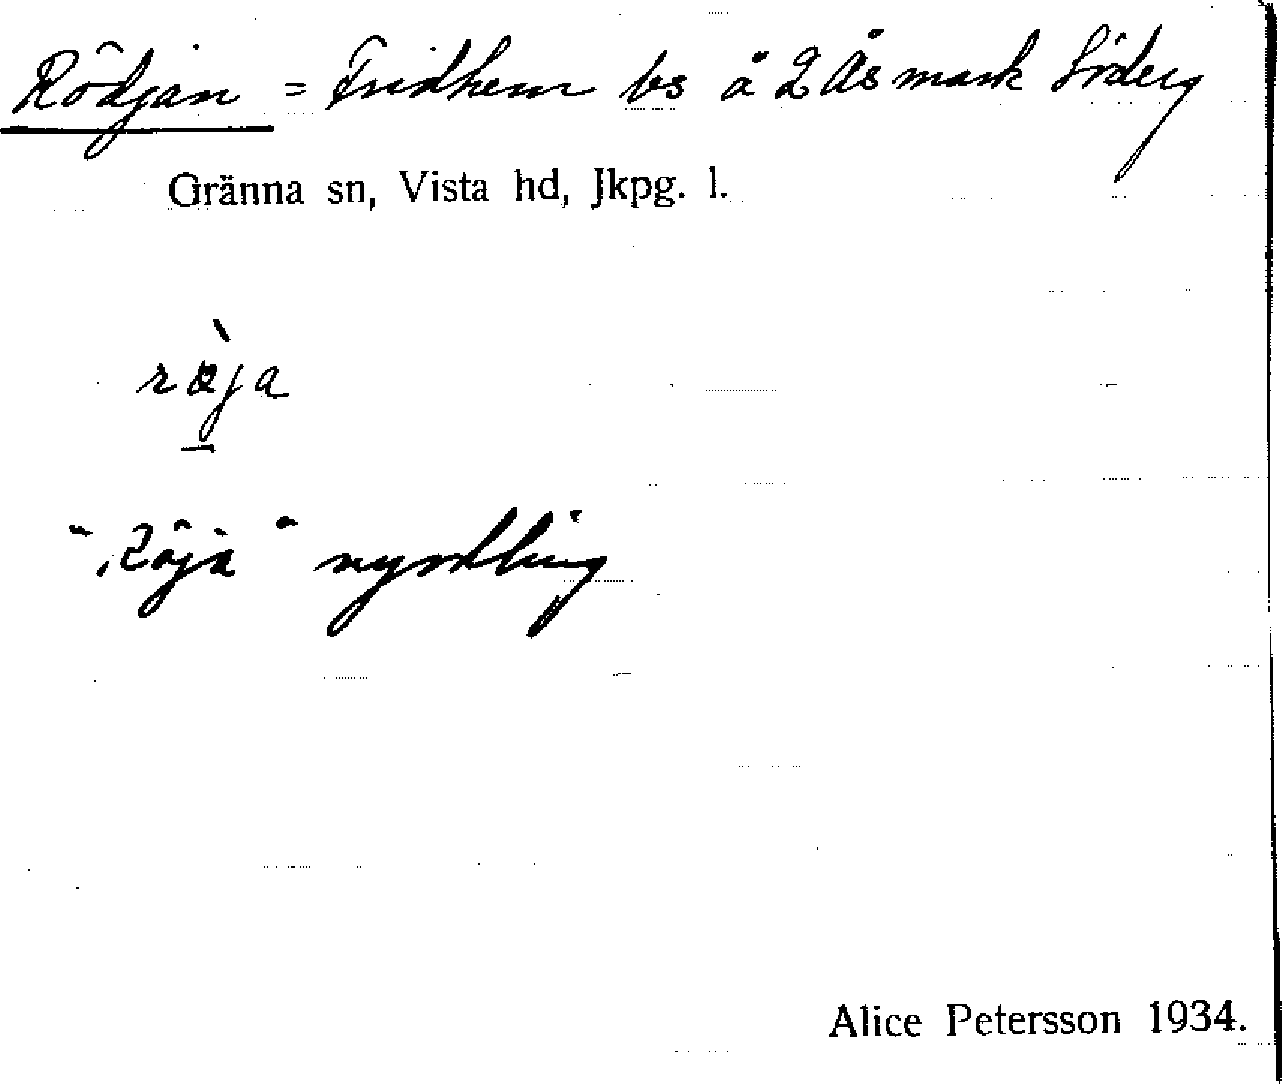 Rödjan = Fridhem bs å 2 Ås mark Söderg
Gränna sn, Vista hd, Jkpg. l.
ròja
"Röja" nyodling
Alice Petersson 1934.